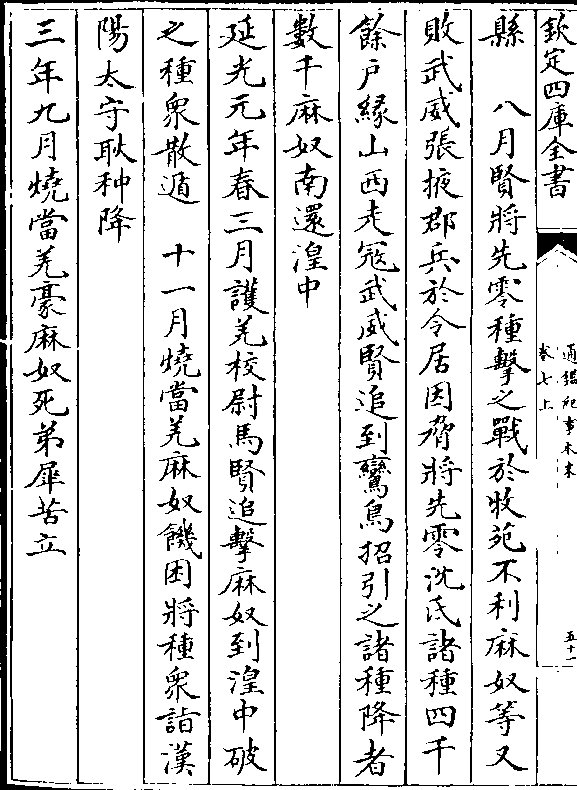 欽定四庫全書
通鑑紀事本末
卷七上
五十一
縣　八月賢將先零種擊之戰於牧苑不利麻奴等又
敗武威張掖郡兵於令居因脅將先零沈氐諸種四千
餘戶緣山西走寇武威賢追到鸞鳥招引之諸種降者
數千麻奴南還湟中
延光元年春三月護羌校尉馬賢追擊麻奴到湟中破
之種衆散遁　十一月燒當羌麻奴饑困將種衆詣漢
陽太守耿种降
三年九月燒當羌豪麻奴死弟犀苦立